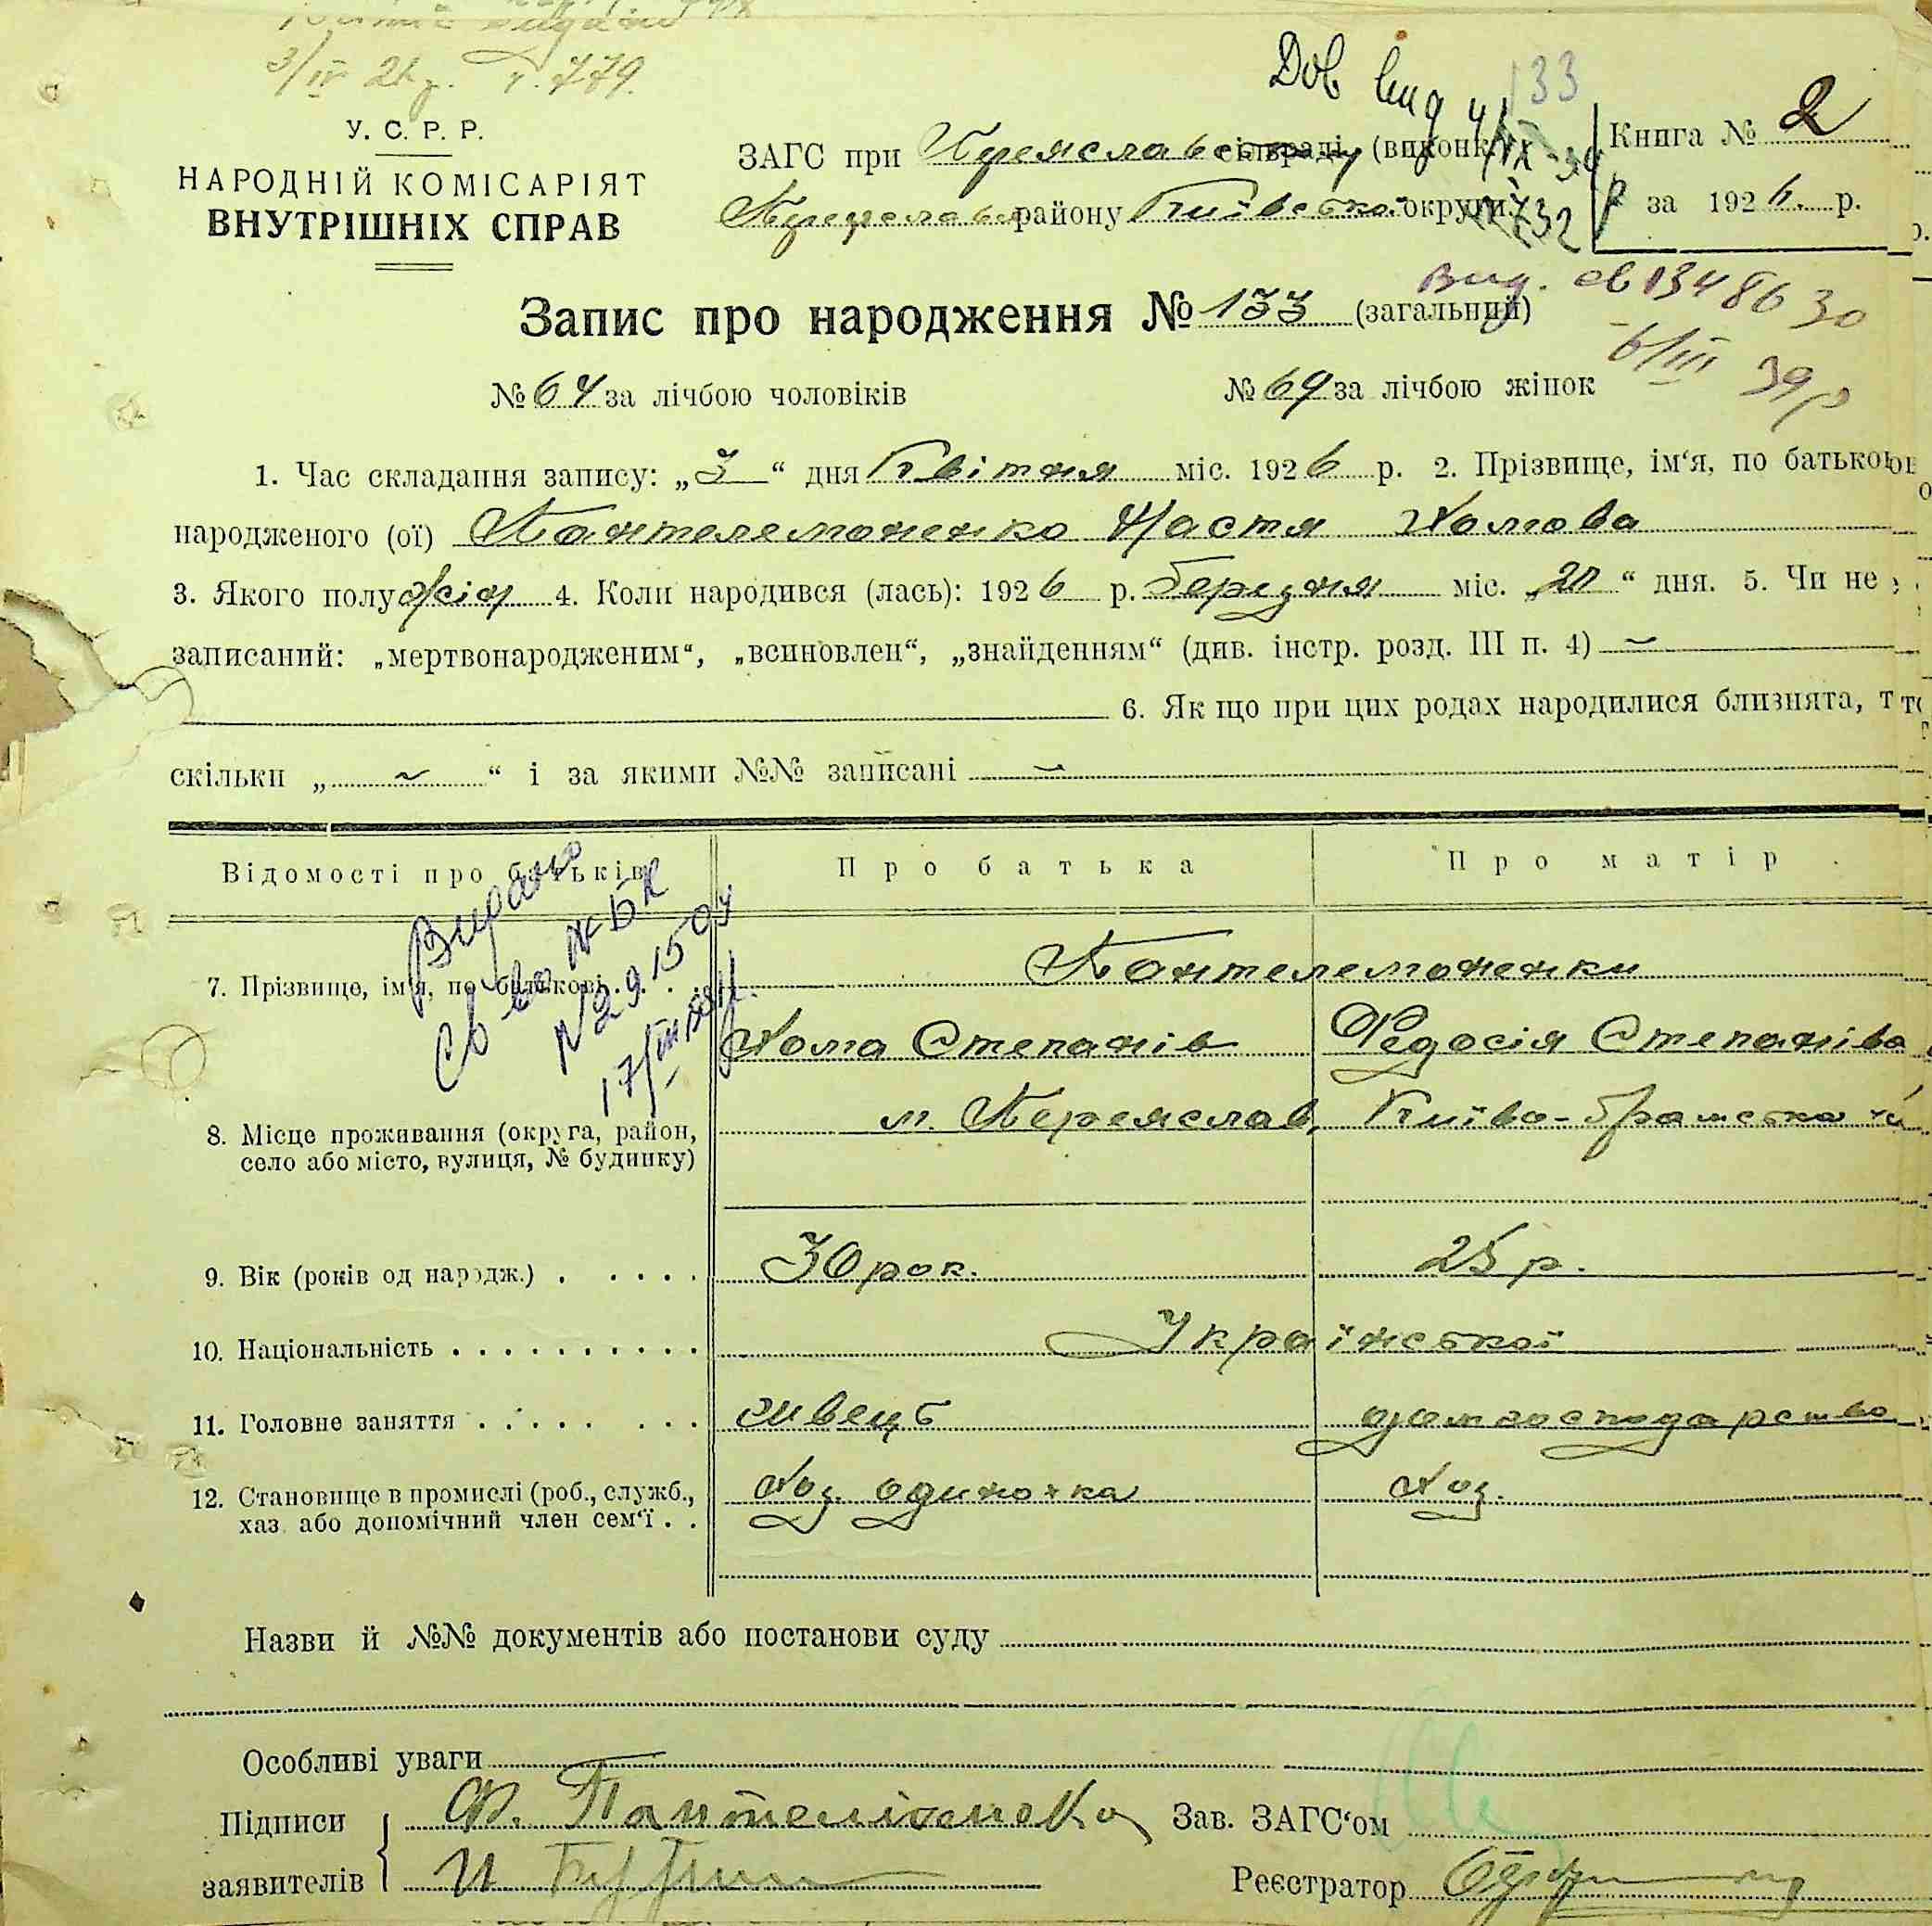 3/IV 26 р. ч. 779.
Дов вид 133
У. С. Р. Р.
НАРОДНІЙ КОМІСАРІЯТ
ВНУТРІШНІХ СПРАВ
ЗАГС при Переяславському сільраді (виконк
Переяславськ району Київської округи
Книга № 2
за 1926 р.
732
Вид. св 1348630
6/III 39р
Запис про народження № 133 (загальний)
№ 64 за лічбою чоловіків № 69 за лічбою жінок
1. Час складання запису: „3“ дня Квітня міс. 1926 р. 2. Прізвище, ім‘я, по батькові
народженого (ої) Пантелемоненко Настя Хомова
3. Якого полу жін 4. Коли народився (лась): 1926 р. березня міс. „27“ дня. 5. Чи не
записаний: „мертвонародженим“, „всиновлен“, „знайденням“ (див. інстр. розд. III п. 4) ~
6. Як що при цих родах народилися близнята, т
скільки „ ~ “ і за якими №№ записані ~
Відомості про батьків Про батька Про матір
Видано
Св во
7. Прізвище, ім‘я, по батькові Пантелемоненки
Хома Степанів Федосія Степанівa
8. Місце проживання (округа, район, м. Переяслав, Київо-брамська
село або місто, вулиця, № будинку)
9. Вік (років од народж.) 30 рок. 25 р.
10. Національність Української
11. Головне заняття швець домгосподарство
12. Становище в промислі (роб., служб., Хоз. одиночка Хоз.
хаз. або допомічний член сем‘ї
Назви й №№ документів або постанови суду
Особливі уваги
Підписи Зав. ЗАГС‘ом
заявителів Реєстратор